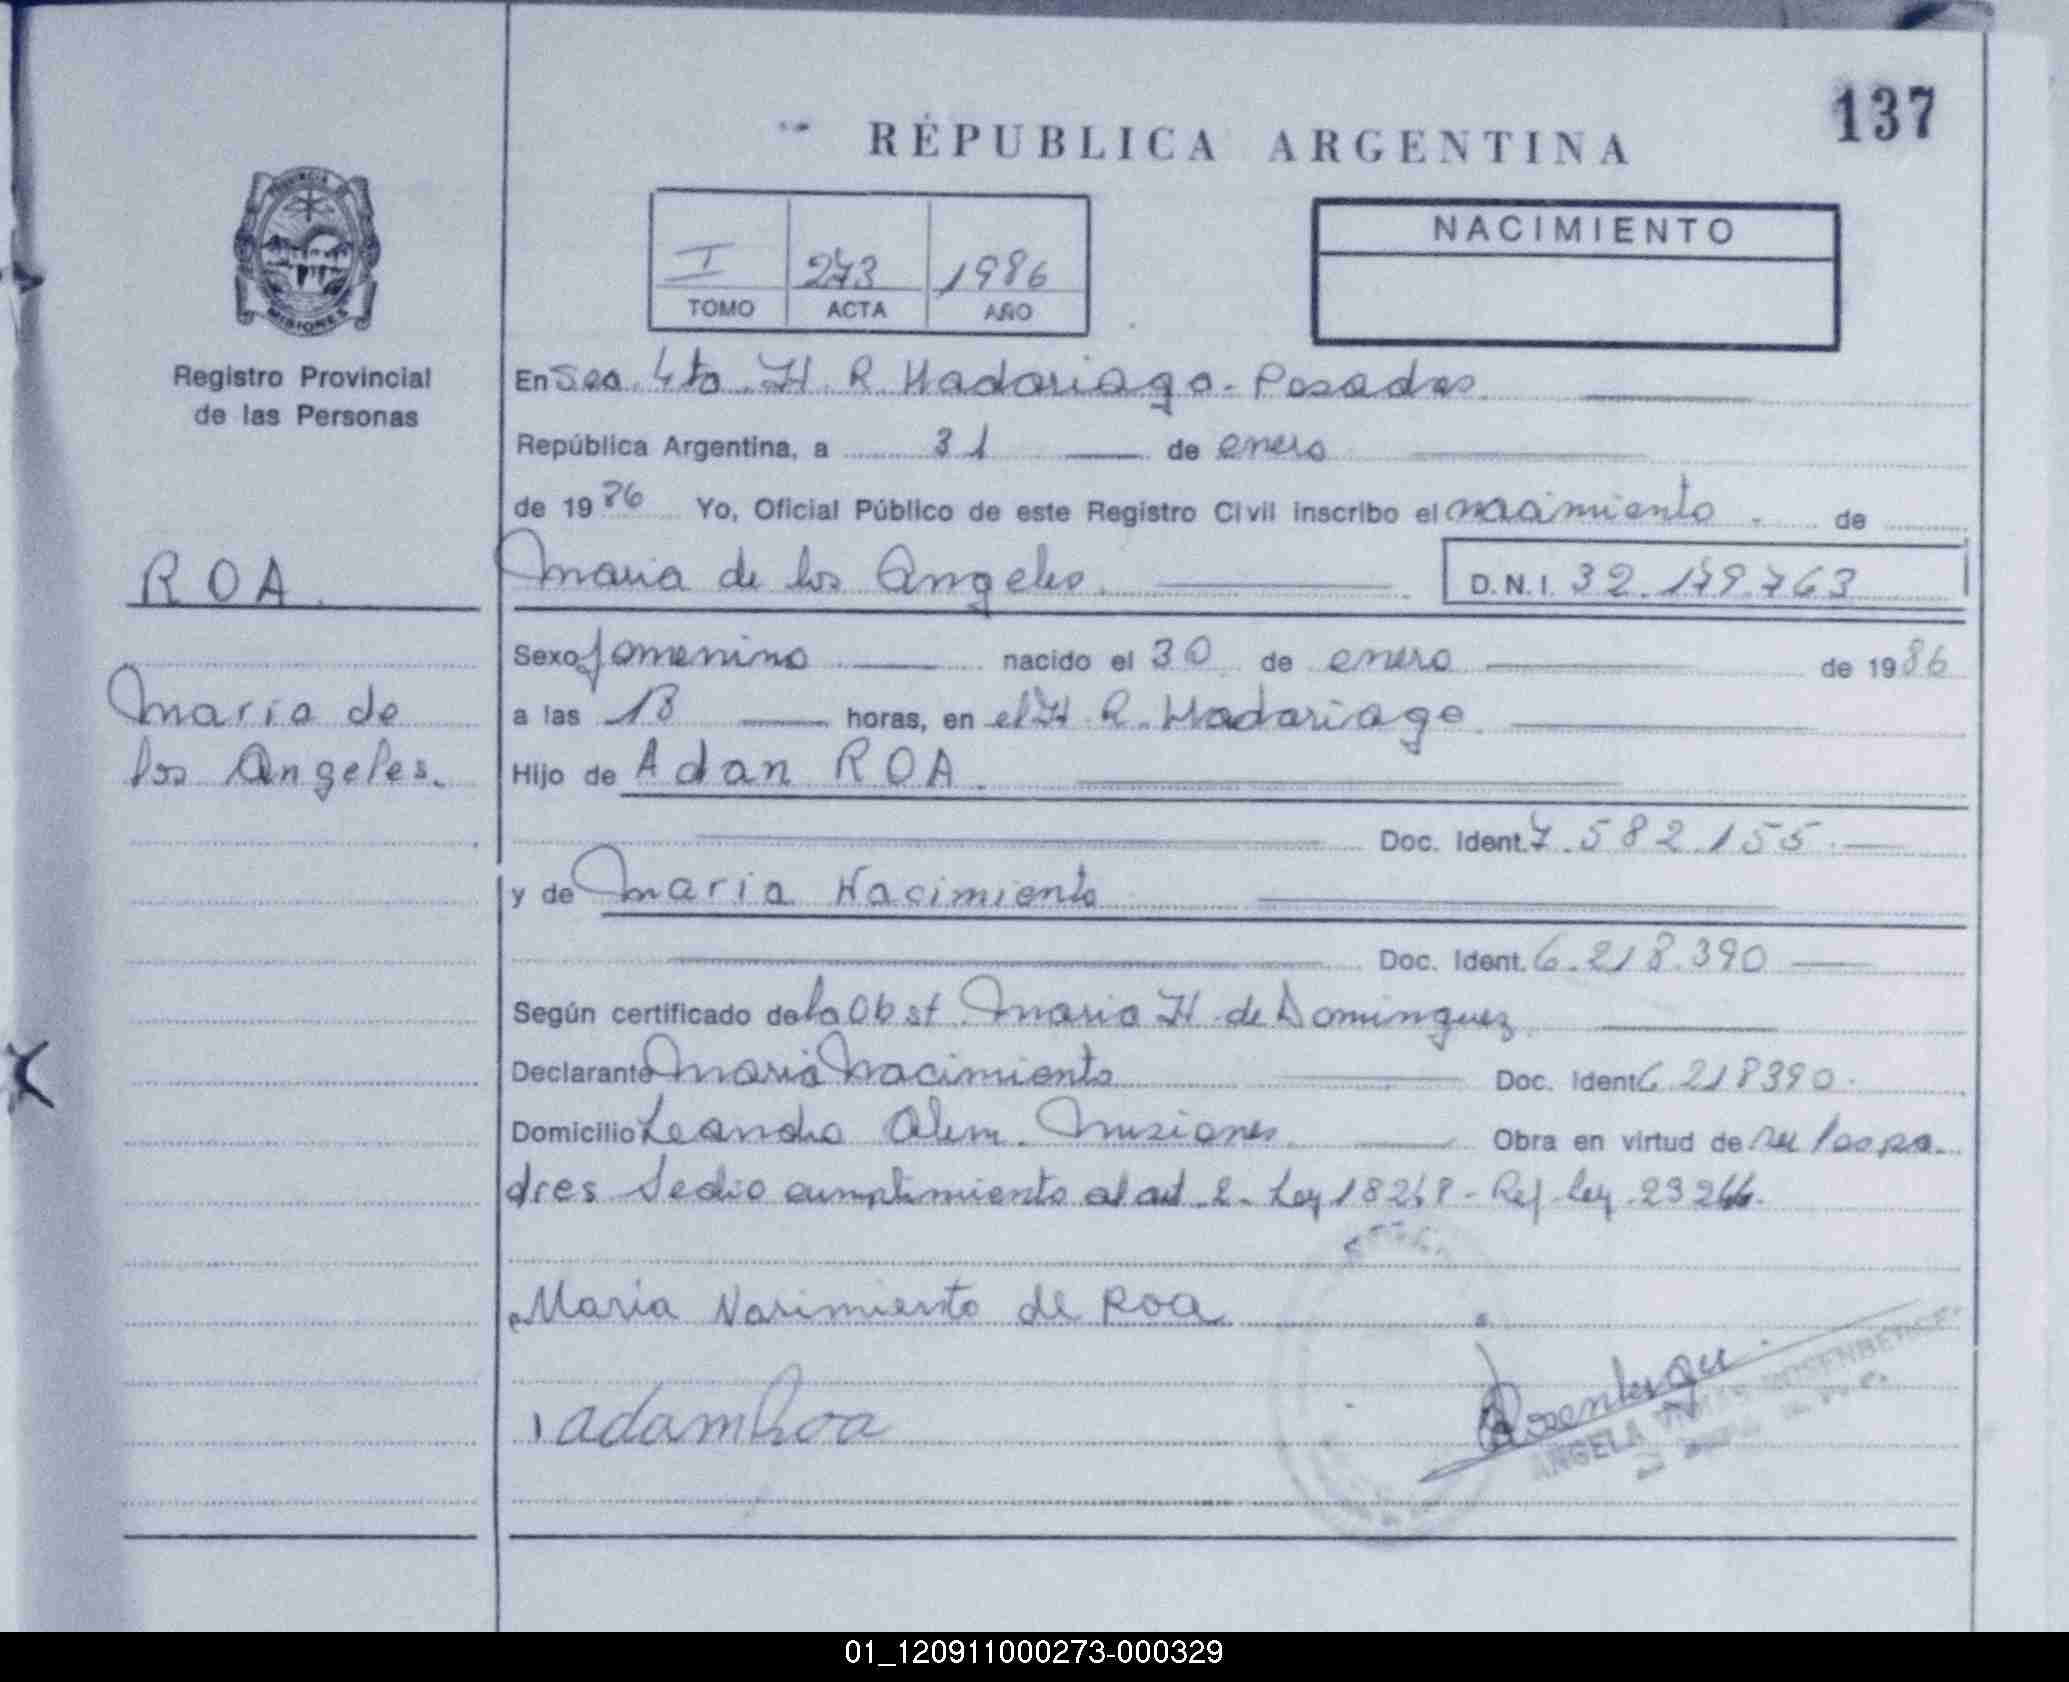 137
REPUBLICA ARGENTINA
PROVINCIA DE
MISIONES
Registro Provincial
de las Personas
I 273 1986
TOMO ACTA AÑO
NACIMIENTO
En Sec. 4to. H. R. Madariaga - Posadas
República Argentina, a 31 de enero
de 1986 Yo, Oficial Público de este Registro Civil inscribo el nacimiento de
ROA
Maria de los Angeles D.N.I. 32.179.763
Sexo femenino nacido el 30 de enero de 1986
Maria de
los Angeles.
a las 13 horas, en el H. R. Madariaga
Hijo de Adan ROA
Doc. Ident. 7.582.155
y de Maria Nacimiento
Doc. Ident. 6.218.390
Según certificado de la Obst. Maria H. de Dominguez
Declarante Maria Nacimiento Doc. Ident 6 218390.
Domicilio Leandro Alem. Misiones Obra en virtud de ser los pa-
dres Se dio cumplimiento al art. 2. Ley 18248 - Ref ley 23264.
Maria Nacimiento de Roa
adam Roa
ANGELA
01_120911000273-000329